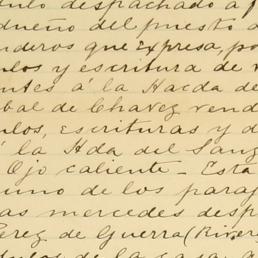 tulo despachado a f
dueño del puesto d
nderos que Expresa, po
ulos y escritura de v
entes á la Hacda de
bal de Chavez vend
ulos, escrituras y d
á la Hda del Sang
Ojo caliente - Esta
uno de los paraj
as mercedes desp
Perez de Guerra (River
tulos de la casa a